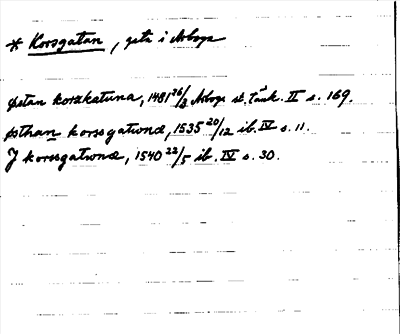 * Korsgatan, gata i Arboga
östan korskatuna, 1481 26/3 Arboga st. Tänk. II s. 169.
östhan korssgatwnæ, 1535 20/12 ib. IV s. 11.
J korssgatwnæ, 1540 22/5 ib. IV s. 30.